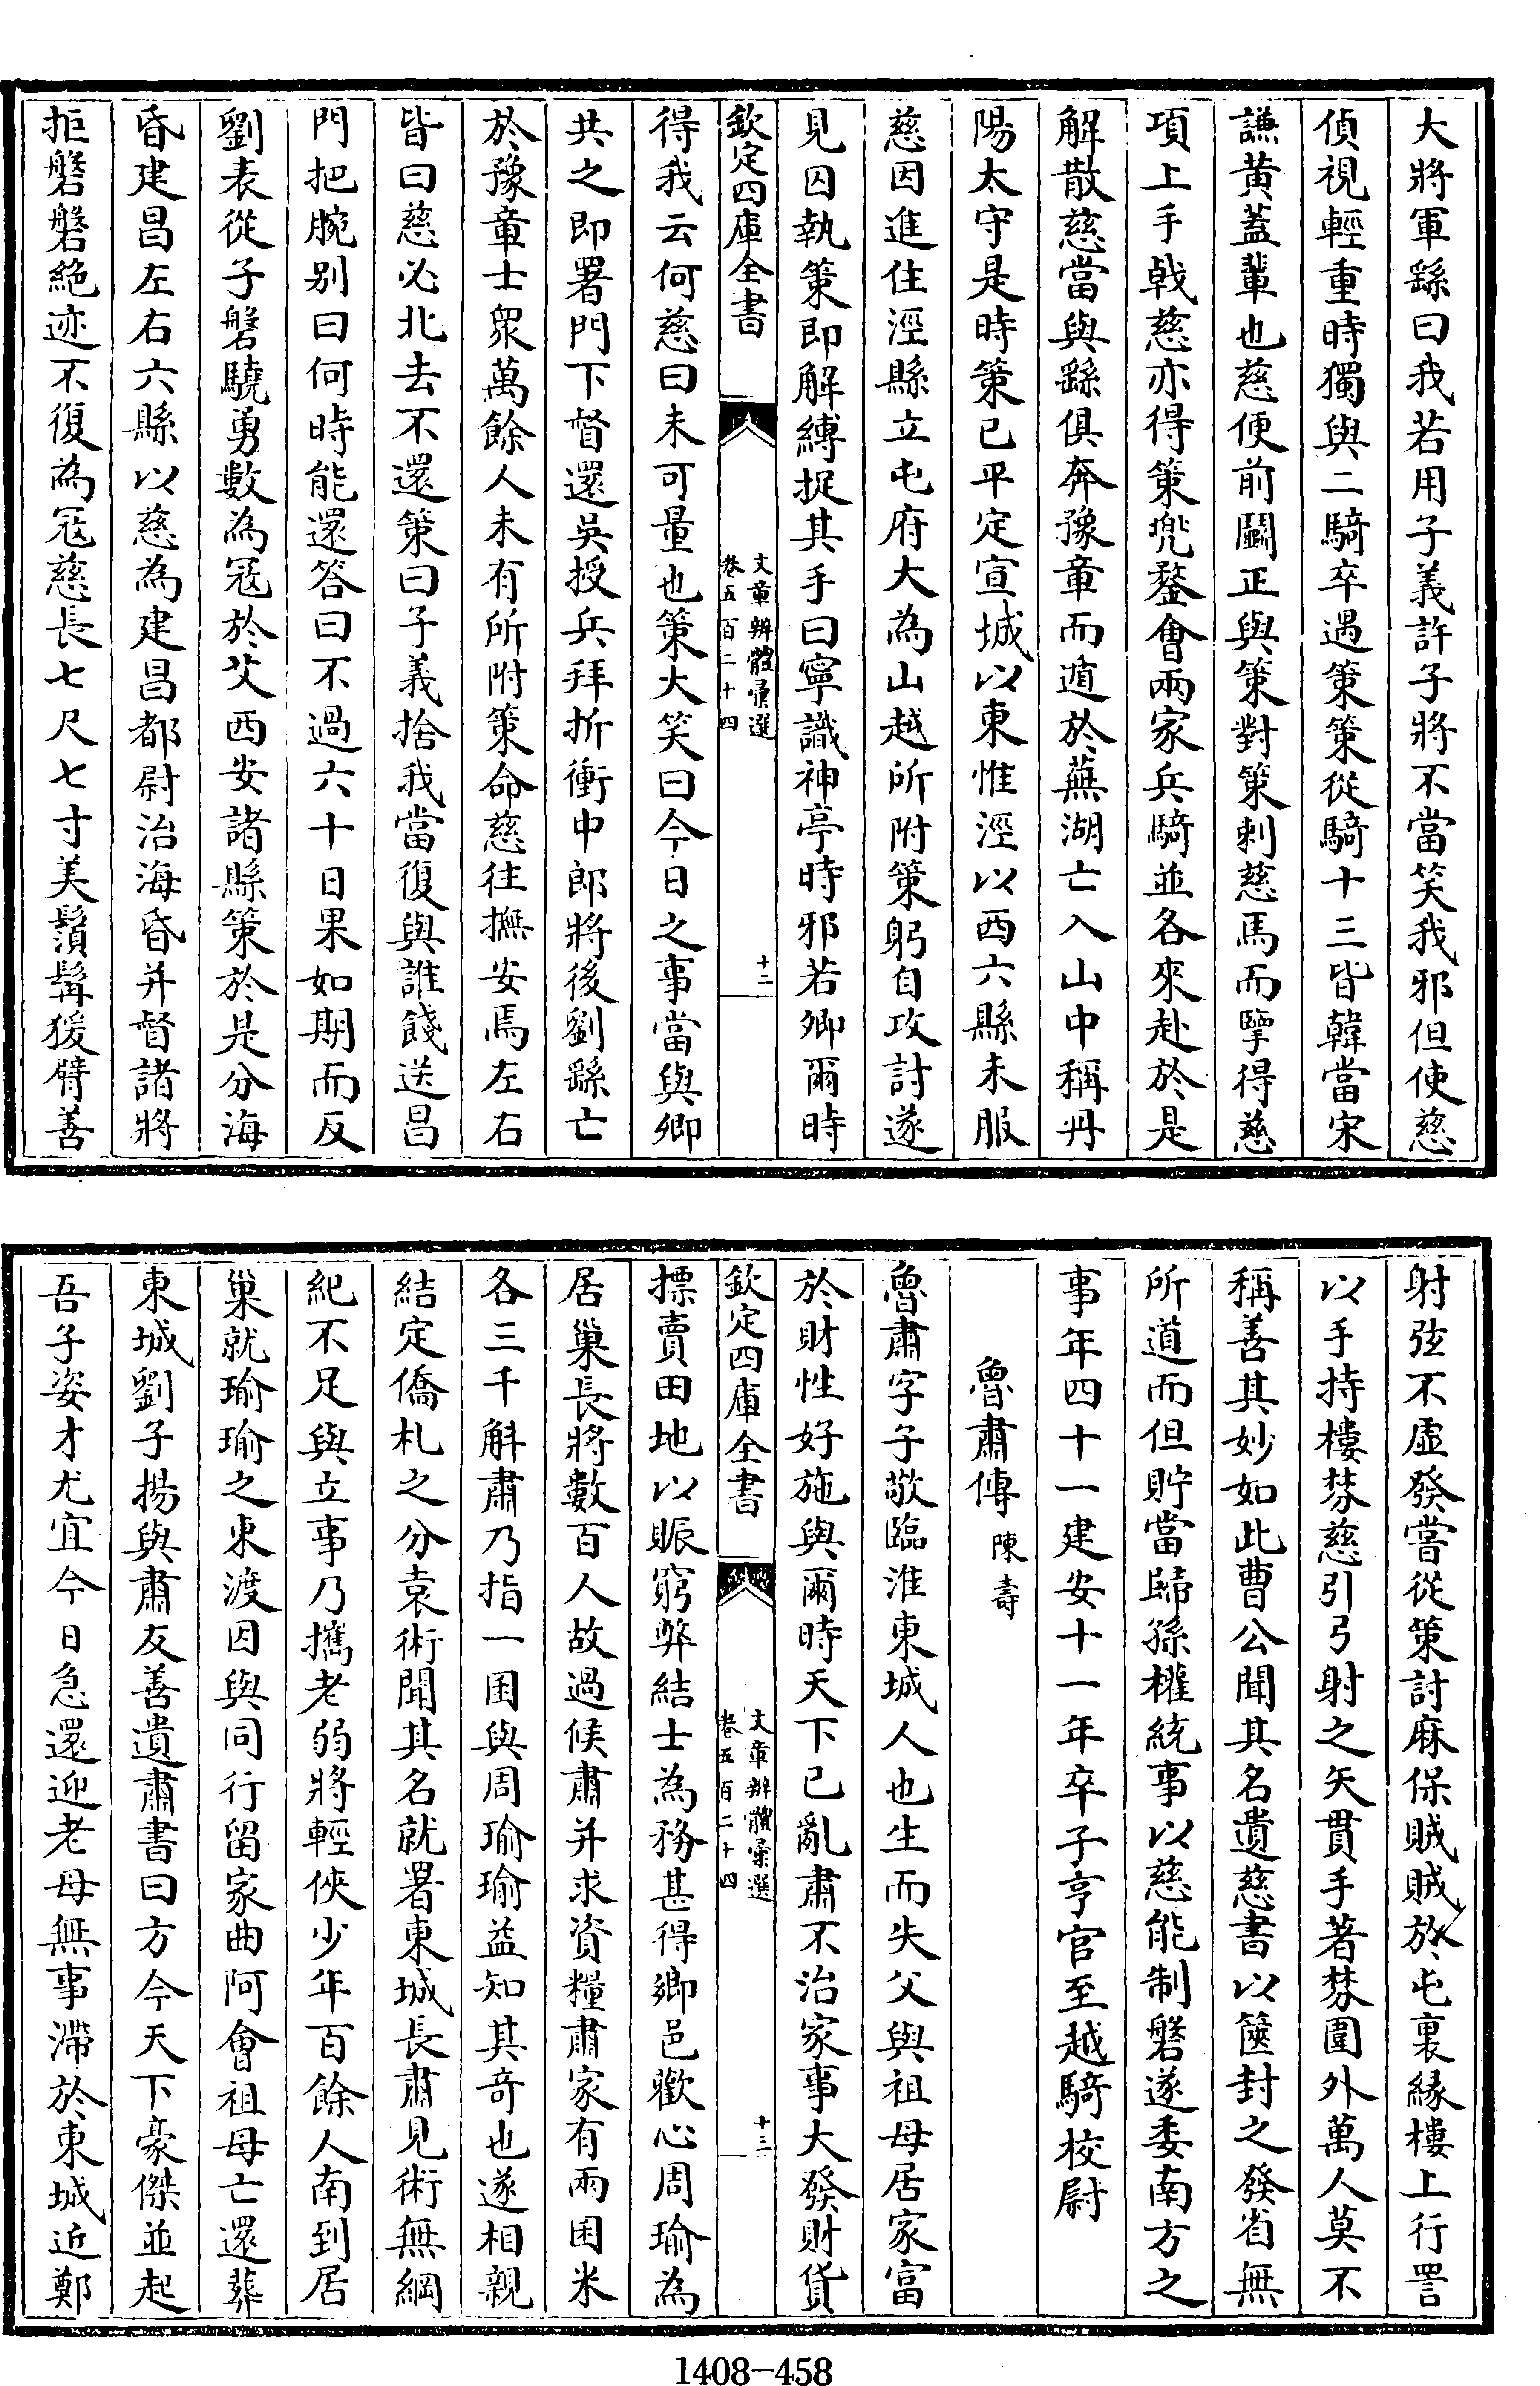 大將軍繇曰我若用子義許子將不當笑我邪但使慈
偵視輕重時獨與二騎卒遇策策從騎十三皆韓當宋
謙黄蓋輩也慈便前鬭正與策對策刺慈馬而擥得慈
項上手㦸慈亦得策兜鍪㑹兩家兵騎並各來赴於是
解散慈當與繇俱奔豫章而遁於蕪湖亡入山中稱丹
陽太守是時策已平定宣城以東惟涇以西六縣未服
慈因進住涇縣立屯府大為山越所附策躬自攻討遂
見囚執策即解縛捉其手曰寧識神亭時邪若卿爾時
欽定四庫全書
文章辨體彙選
卷五百二十四
十二
得我云何慈曰未可量也策大笑曰今日之事當與卿
共之即署門下督還吳授兵拜折衝中郎將後劉繇亡
於豫章士衆萬餘人未有所附策命慈往撫安焉左右
皆曰慈必北去不還策曰子義捨我當復與誰餞送昌
門把腕别曰何時能還答曰不過六十日果如期而反
劉表從子磐驍勇數為冦於艾西安諸縣策於是分海
昏建昌左右六縣以慈為建昌都尉治海昏并督諸將
拒磐磐絶迹不復為冦慈長七尺七寸美鬚髯猨臂善
射弦不虛發嘗從策討麻保賊賊於屯裏縁樓上行詈
以手持樓棼慈引弓射之矢貫手著棼圍外萬人莫不
稱善其妙如此曹公聞其名遺慈書以篋封之發省無
所道而但貯當歸孫權統事以慈能制磐遂委南方之
事年四十一建安十一年卒子亨官至越騎校尉
魯肅傳 陳壽
魯肅字子敬臨淮東城人也生而失父與祖母居家富
於財性好施與爾時天下已亂肅不治家事大發財貨
欽定四庫全書
文章辨體彙選
卷五百二十四
十三
摽賣田地以賑窮弊結士為務甚得鄉邑歡心周瑜為
居巢長將數百人故過候肅并求資糧肅家有兩囷米
各三千斛肅乃指一囷與周瑜瑜益知其奇也遂相親
結定僑札之分袁術聞其名就署東城長肅見術無綱
紀不足與立事乃攜老弱將輕俠少年百餘人南到居
巢就瑜瑜之東渡因與同行留家曲阿㑹祖母亡還葬
東城劉子揚與肅友善遺肅書曰方今天下豪傑並起
吾子姿才尤宜今日急還迎老母無事滯於東城近鄭
1408-458